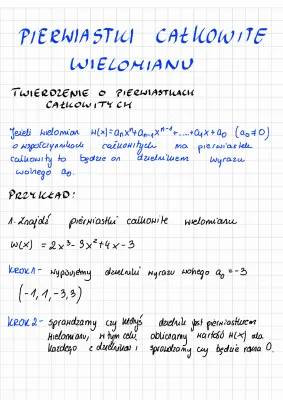 PIERWIASTKI CAŁKOWITE
WIELOMIANU
TWIERDZENIE O PIERWIASTKACH
CAŁKOWITYCH
Jeżeli wielomian W(x)=aₙxⁿ+aₙ₋₁xⁿ⁻¹+....+a₁x+a₀ (a₀≠0)
o współczynnikach całkowitych ma pierwiastek
całkowity to będzie on dzielnikiem wyrazu
wolnego a₀.
PRZYKŁAD:
1. Znajdź pierwiastki całkowite wielomianu
W(x) = 2x³-3x²+4x-3
KROK 1- wypisujemy dzielniki wyrazu wolnego a₀=-3
(-1,1,-3,3)
KROK 2- sprawdzamy czy któryś dzielnik jest pierwiastkiem
wielomianu, w tym celu obliczamy wartość W(x) dla
każdego z dzielników i sprawdzamy czy będzie równa 0.